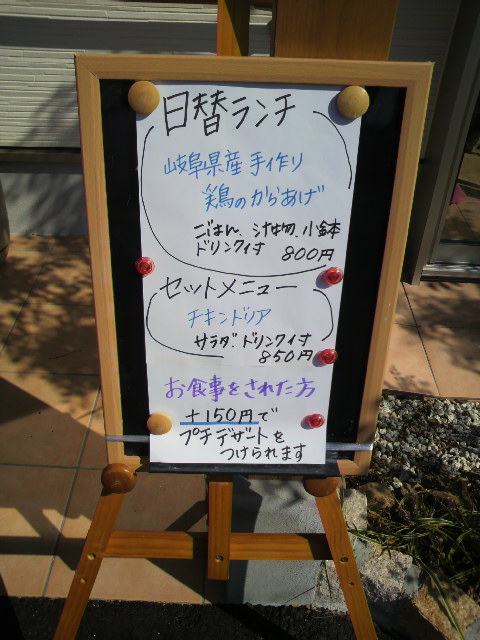 日替ランチ
岐阜県産 手作り
鶏のからあげ
ごはん、シチュウ、小鉢
ドリンク付 800円
セットメニュー
チキンドリア
サラダ、ドリンク付
850円
お食事をされた方
+150円で
プチデザートを
つけられます